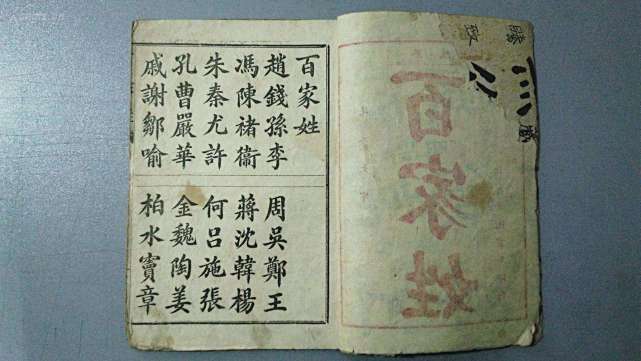 百家姓
百家姓
趙錢孫李 周吳鄭王
馮陳禇衞 蔣沈韓楊
朱秦尤許 何呂施張
孔曹嚴華 金魏陶姜
戚謝鄒喻 柏水竇章